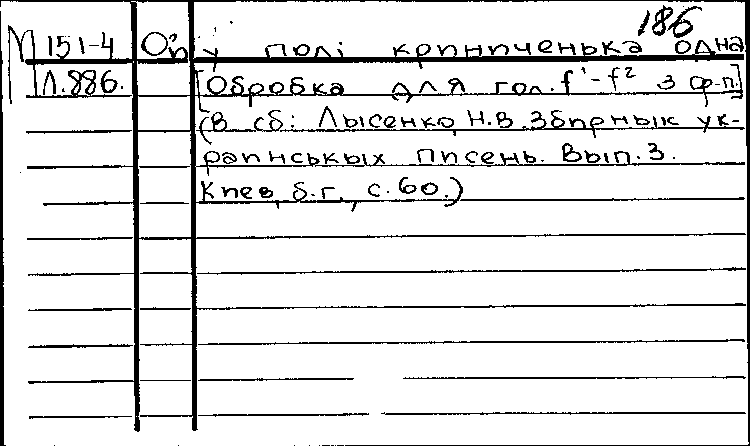 186
М 151-4 Ой у полі криниченька одна
Л.886. [Обробка для гол. f¹-f² з ф-п.]
(В сб: Лысенко, Н.В. Збирнык ук-
раинськых писень. Вып. 3.
Киев, б.г., с. 60.)